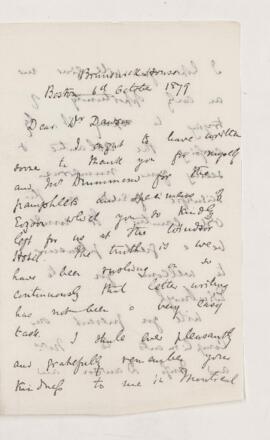 Brunswick House
Boston 6th October 1879
Dear Dr Dawson
I ought to have written
some to thank you for myself
and Mr Drummond for the
pamphlets and specimens of
Eozoon which you so kindly
left for us at the Windsor
Hotel. The truth is we
have been revolving so
continuously that letter writing
has not been a very easy
task. I shall ever pleasantly
and gratefully remember your
kindness to me in Montreal